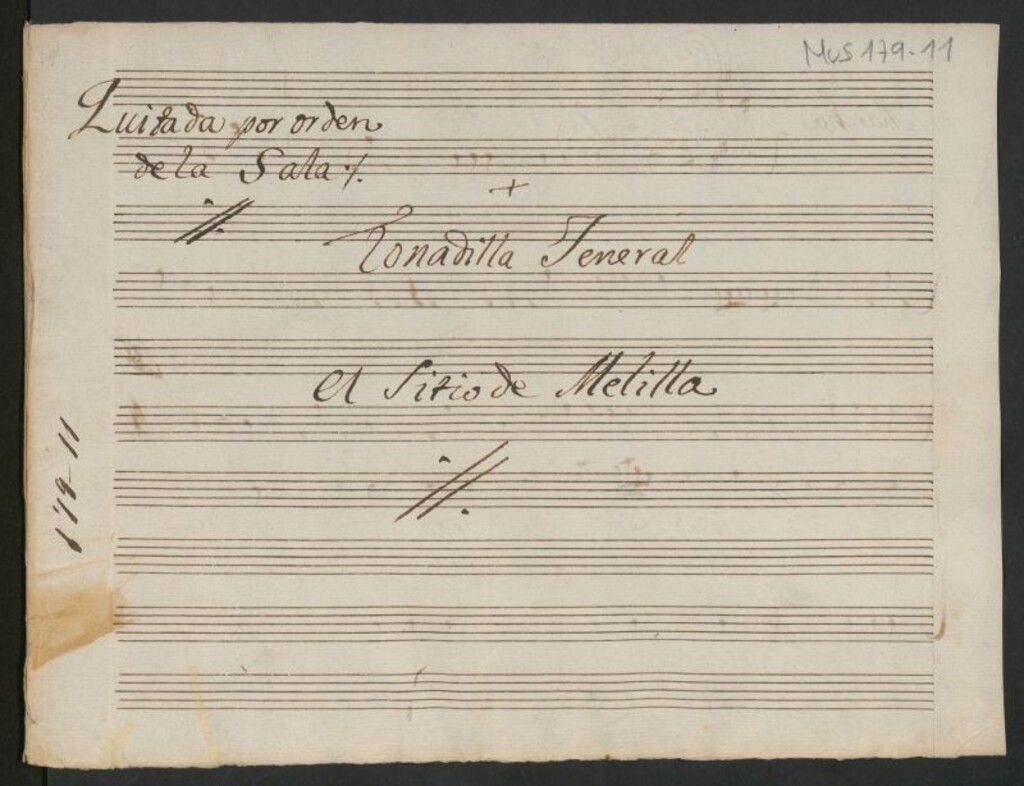 Mus 179-11
Quitada por orden
de la Sala ·/.
+
Tonadilla Jeneral
el Sitio de Melilla
179-11